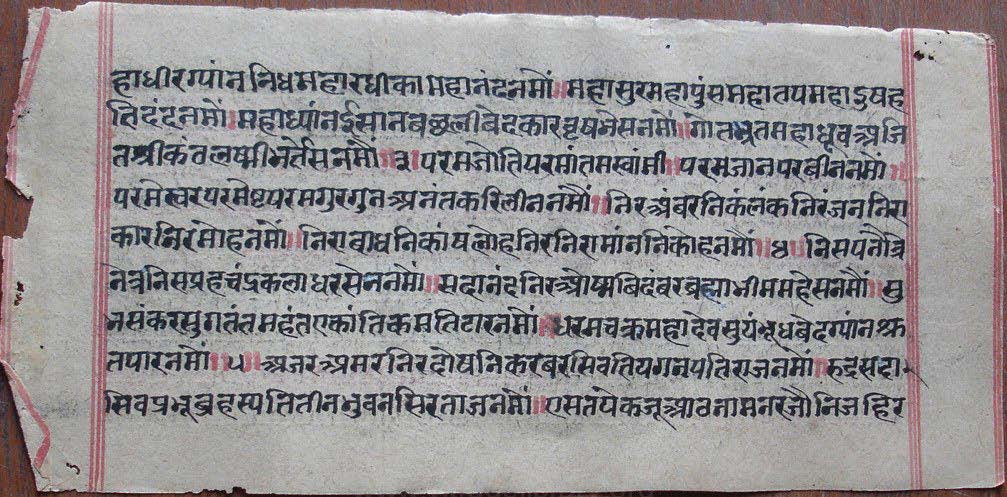 हाधीरग्पांन निधमहारथीका महानंदनमौं ॥ महासुरमहापुंसमहातपमहाऽुषह
तिदंदनमौं ॥ महाध्यांनईसानबछलीबेदकारवृषभेसनमौं ॥ गोतमूतमहाधृवअजि
तश्रीकंतलष्मीभर्तसनमौं ॥ ३ ॥ परमजोतिपरमांतमस्वांमी ॥ परमजानपरबीननमौं ॥
परमेस्वरपरमेष्टपरमगुरगुनअनंतकरिलीननमौं ॥ निरअंवरनिकलंकनिरंजननिरा
कारनिरमोहनमौं ॥ निरावाधनिकांयलोहनिरनिरामांननिकोहनमौं ॥ ४ ॥ निसपतौत्रि
नेत्रनिसप्रहचंद्रकलाधरसेननमौं ॥ सदानंदनिरऔपमबिदंवरब्रह्माभीममहेसनमौं ॥ सु
भसंकरसुगतंतमहंतएकांतिकमतिटारनमौं ॥ धरमचक्रमहादेवसुयंभूधबेदग्पांनश्रु
तपारनमौं ॥ ५ ॥ अजरअमरनिरदोषनिकरबरसिवतियगनपतिराजनमौं ॥ रुद्रसदा
सिवप्रभूब्रहस्पतितीनभुवनसिरताजनमौं ॥ एसतयेकजूआठनामनरजौनिजहिर